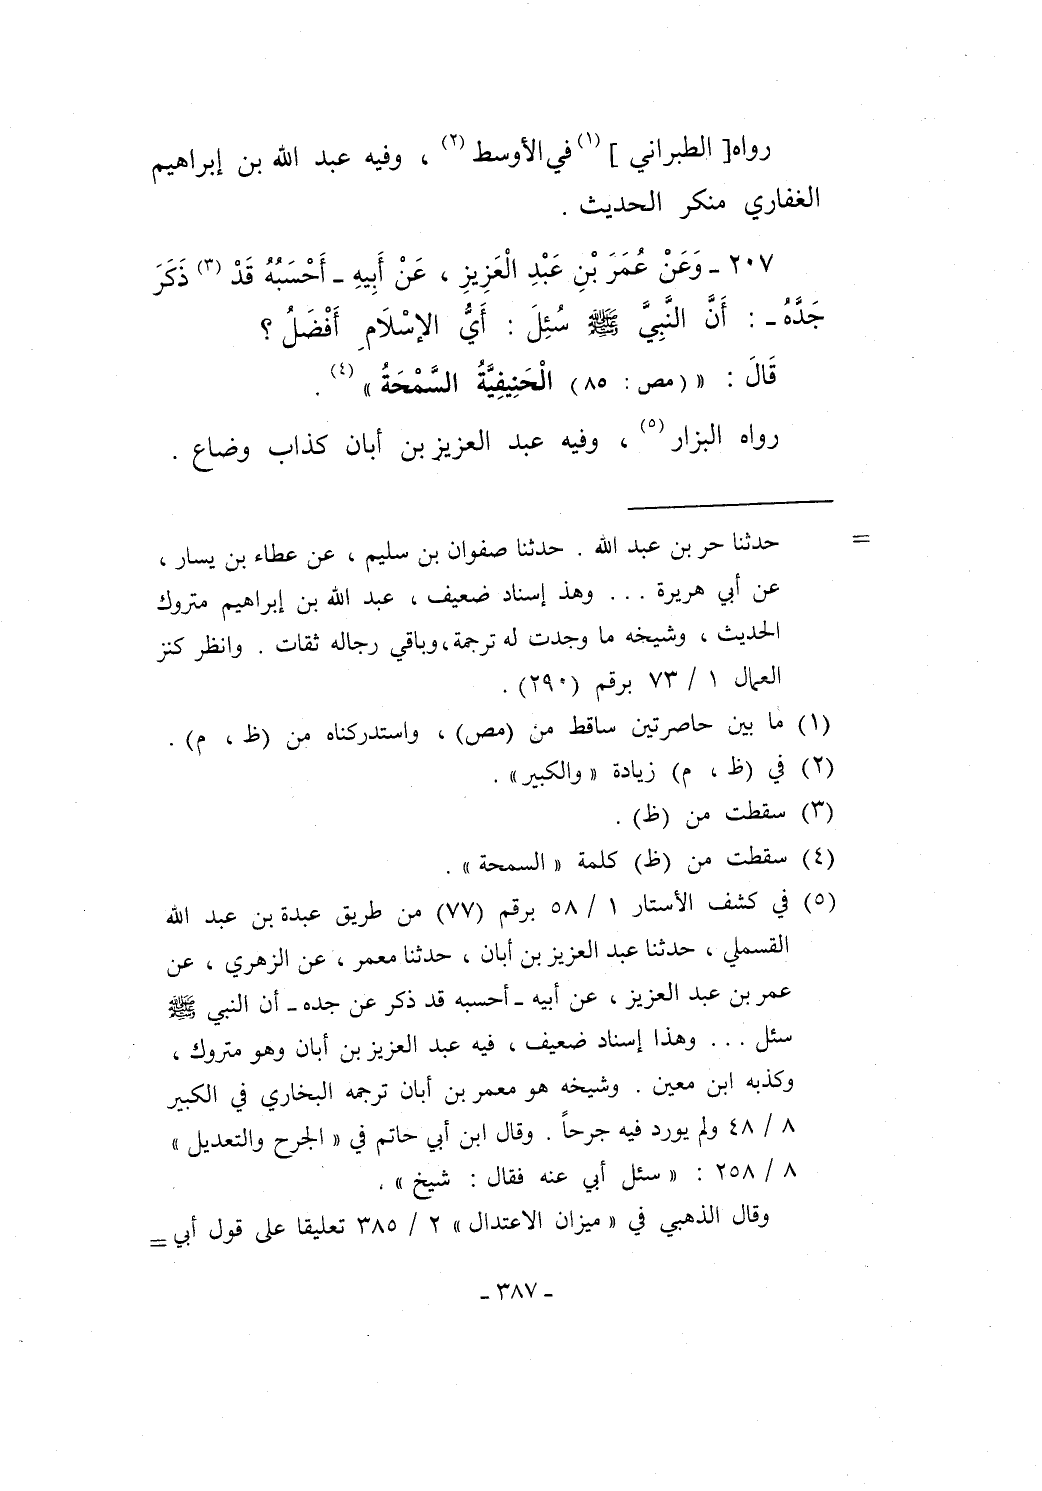 رواه[ الطبراني ] (١) في الأوسط (٢) ، وفيه عبد الله بن إبراهيم
الغفاري منكر الحديث .
٢٠٧ - وَعَنْ عُمَرَ بْنِ عَبْدِ الْعَزِيزِ ، عَنْ أَبِيهِ - أَحْسَبُهُ قَدْ (٣) ذَكَرَ
جَدَّهُ - : أَنَّ النَّبِيَّ ﷺ سُئِلَ : أَيُّ الإِسْلَامِ أَفْضَلُ ؟
قَالَ : « (مص : ٨٥) الْحَنِيفِيَّةُ السَّمْحَةُ » (٤) .
رواه البزار (٥) ، وفيه عبد العزيز بن أبان كذاب وضاع .
= حدثنا حر بن عبد الله . حدثنا صفوان بن سليم ، عن عطاء بن يسار ،
عن أبي هريرة ... وهذ إسناد ضعيف ، عبد الله بن إبراهيم متروك
الحديث ، وشيخه ما وجدت له ترجمة، وباقي رجاله ثقات . وانظر كنز
العمال ١ / ٧٣ برقم (٢٩٠) .
(١) ما بين حاصرتين ساقط من (مص) ، واستدركناه من (ظ ، م) .
(٢) في (ظ ، م) زيادة « والكبير» .
(٣) سقطت من (ظ) .
(٤) سقطت من (ظ) كلمة « السمحة » .
(٥) في كشف الأستار ١ / ٥٨ برقم (٧٧) من طريق عبدة بن عبد الله
القسملي ، حدثنا عبد العزيز بن أبان ، حدثنا معمر ، عن الزهري ، عن
عمر بن عبد العزيز ، عن أبيه - أحسبه قد ذكر عن جده - أن النبي ﷺ
سئل ... وهذا إسناد ضعيف ، فيه عبد العزيز بن أبان وهو متروك ،
وكذبه ابن معين . وشيخه هو معمر بن أبان ترجمه البخاري في الكبير
٨ / ٤٨ ولم يورد فيه جرحاً . وقال ابن أبي حاتم في « الجرح والتعديل »
٨ / ٢٥٨ : « سئل أبي عنه فقال : شيخ » .
وقال الذهبي في « ميزان الاعتدال » ٢ / ٣٨٥ تعليقا على قول أبي =
- ٣٨٧ -